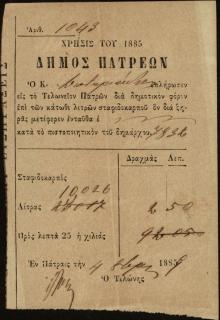 Ἀριθ. 1043
ΧΡΗΣΙΣ ΤΟΥ 1885
ΔΗΜΟΣ ΠΑΤΡΕΩΝ
Ὁ Κ. ἐπλήρωσεν
εἰς τὸ Τελωνεῖον Πατρῶν διὰ δημοτικὸν φόρον
ἐπὶ τῶν κάτωθι λιτρῶν σταφιδοκαρποῦ ὃν διὰ ξη-
ρᾶς μετέφερεν ἐνταῦθα
κατὰ τὸ πιστοποιητικὸν τοῦ δημάρχου 7932
Δραχμὰς Λεπ.
Σταφιδοκαρπὸς
10,026
Λίτρας 2 50
Πρὸς λεπτὰ 25 ἡ χιλιὰς
Ἐν Πάτραις τῇ 4 1885
Ὁ Τελώνης